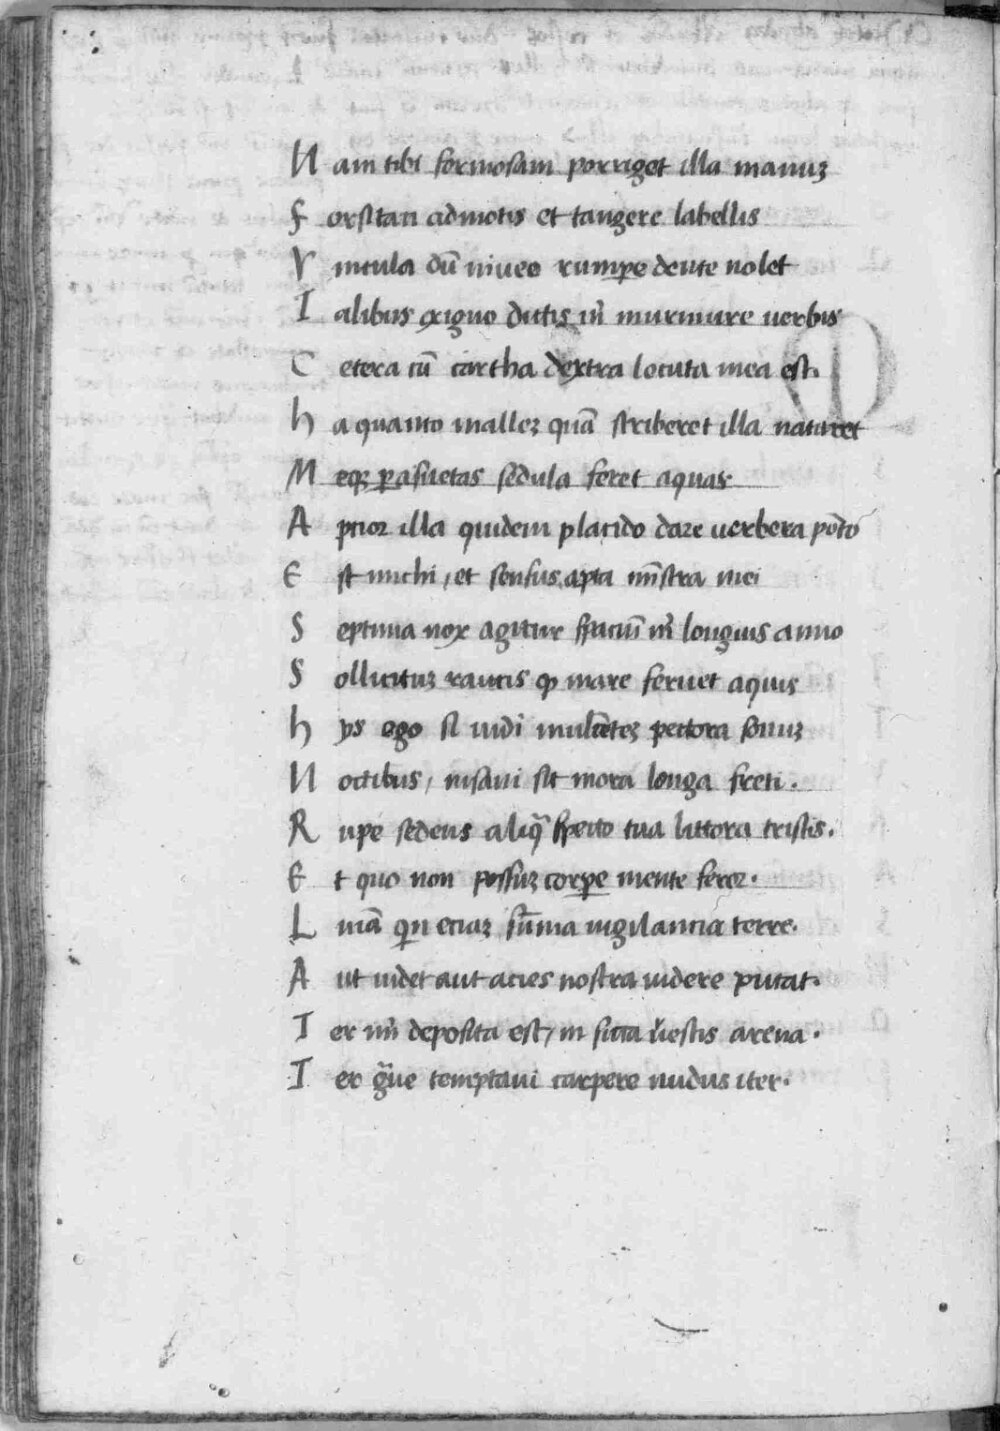 N am tibi formosam porriget illa manuʒ
F orsitan admotis et tangere labellis
V incula dū niueo rumpe dente uolet
T alibus exiguo dictis mī murmure uerbis
C etera cū cartha dextra locuta mea est.
h a quanto malleʒ quā scriberet illa nataret
M eqʒ per asuetas sedula ferret aquas
A ptior illa quidem placido dare uerbera pōto
E st michi, et sensus apta mīstra mei
S eptima nox agitur spaciū mī longius anno
S ollicituʒ raucis ꝙ mare feruet aquis
h ys ego si uidi mulcēteʒ pectora sōnuʒ
N octibus, insani sit mora longa freti.
R upe sedens aliq̄ specto tua littora tristis.
E t quo non possuʒ corpore mente feror.
L umā quin eciaʒ sūma uigilancia terre.
A ut uidet aut acies nostra uidere putat.
T er m̄ deposita est, in sicca uestis arena.
T er gūe temptaui carpere nudus iter.